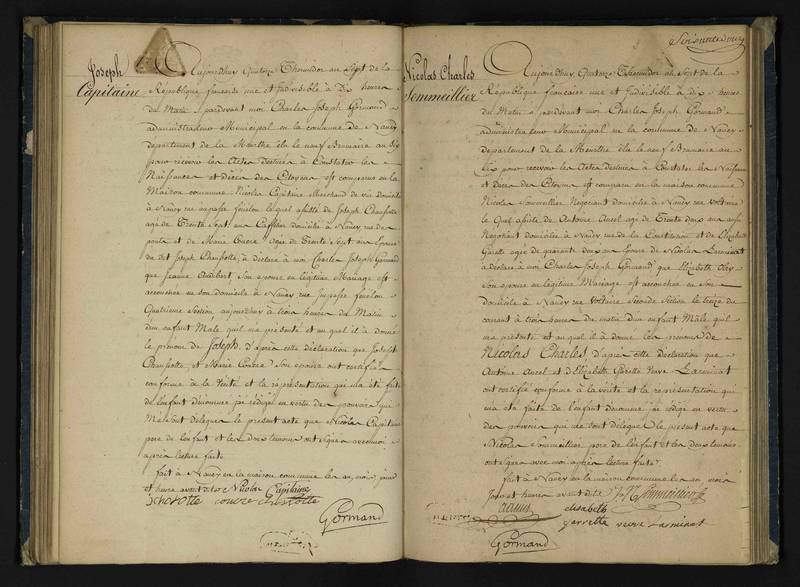 Joseph
Capitaine
Aujourdhuy quatorze Thermidor an Sept de la
République francaise une et Indivisible à Dix heures
du Matin pardevant moi Charles Joseph Gormand
administrateur Municipal en la commune de Nancy
département de la Meurthe élu le neuf Brumaire an Six
pour recevoir les Actes destinés à Constater les
Naissances et décès des Citoyens est comparu en la
Maison commune Nicolas Capitaine Marchand de vin domicilié
à Nancy rue impasse fouelon lequel assisté de Joseph
agé de Trente Sept ans domicilié à Nancy rue des
ponts et de Marie agée de Trente Sept ans Epouse
du dit Joseph à déclaré à moi Charles Joseph Gormand
que Jeanne Aubert Son epouse en légitime Mariage est
accouchée en son domicile à Nancy rue Impasse fouelon
Quatrieme Section, aujourdhuy à trois heures du Matin
d'un enfant Mâle quil ma présenté et au quel il à donné
le prénom de Joseph. d'après cette déclaration que Joseph
et Marie Son epouse ont certifié
conforme de la Vérité et la représentation qui ma été faite
de l'enfant dénommé jai rédigé en vertu des pouvoirs qui
Me sont délégués le présent acte que Nicolas Capitaine
pere de l'enfant et les deux temoins ont signé avec moi
après lecture faite
fait à Nancy en la maison commune les an, mois, jour
et heure avant dits Nicolas Capitaine
Gormand
Nicolas Charles
Sommeillier
Aujourdhuy quatorze Thermidor an Sept de la
République francaise une et Indivisible à Dix heures
du Matin pardevant moi Charles Joseph Gormand
administrateur Municipal en la commune de Nancy
département de la Meurthe élu le neuf Brumaire an
Six pour recevoir les Actes destinés à Constater les Naissances
et décès des Citoyens est comparu en la maison commune
Nicolas Sommeillier Negociant domicilié à Nancy rue Voltaire
le Quel assisté de Antoine agé de Trente deux ans aussi
Negotiant domicilié à Nancy rue de la Constitution et de Elizabeth
agée de quarante deux ans Veuve de Nicolas Larminat
à déclaré à moi Charles Joseph Gormand que Elizabeth
Son epouse en légitime Mariage est accouchée en son
domicile à Nancy rue Voltaire Seconde Section le treize du
courant à trois heures du matin d'un enfant Mâle quil
ma présenté et au quel il à donné les prénoms de
Nicolas Charles, d'après cette déclaration que
Antoine et Elizabeth Veuve Larminat
ont certifié conforme à la vérité et la représentation qui
ma été faite de l'enfant dénommé jai rédigé en vertu
des pouvoirs qui me sont délégués le présent acte que
Nicolas Sommeillier pere de l'enfant et les deux temoins
ont signé avec moi après lecture faite
fait à Nancy en la maison commune les an mois
Jour et heure avant dits Sommeillier
elisabeth
veuve Larminat
Gormand